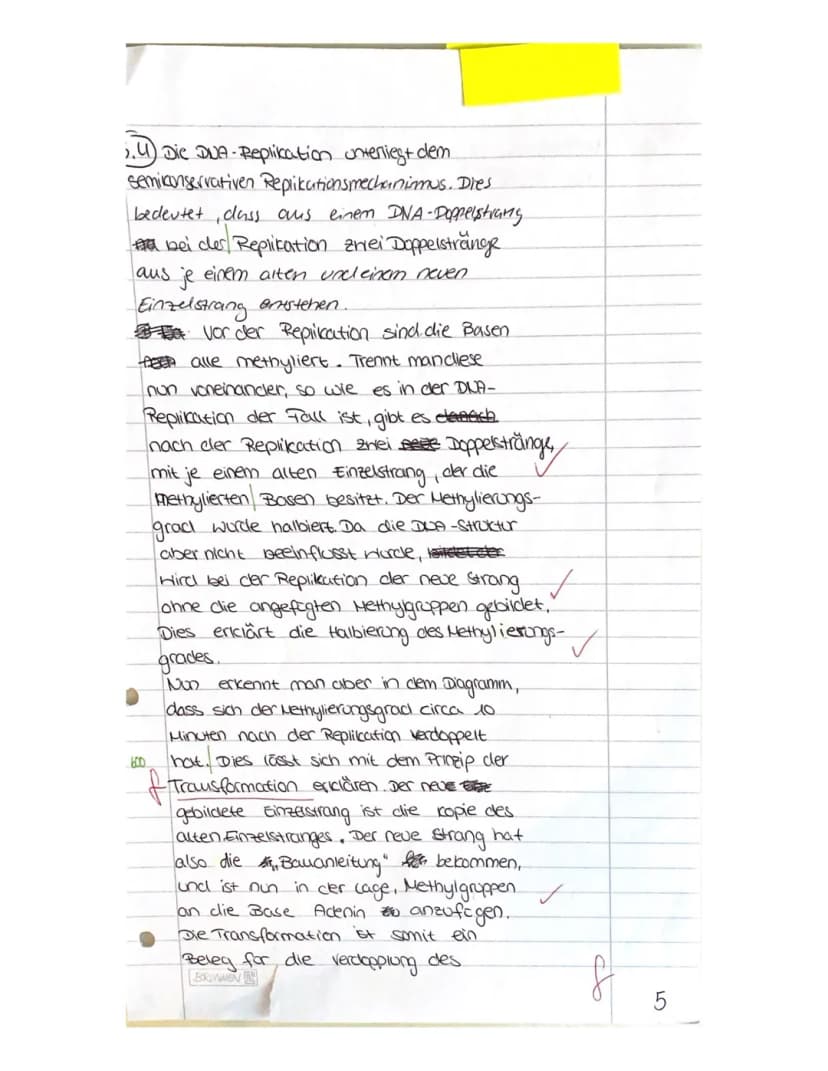 5.4) Die DNA-Replikation unterliegt dem
semikonservativen Replikationsmechanimus. Dies
bedeutet, dass aus einem DNA-Doppelstrang
bei der Replikation zwei Doppelstränge
aus je einem alten und einem neuen
Einzelstrang entstehen.
Vor der Replikation sind die Basen
alle methyliert. Trennt man diese
nun voneinander, so wie es in der DNA-
Replikation der Fall ist, gibt es danach
nach der Replikation zwei Doppelstränge,
mit je einem alten Einzelstrang, der die
methylierten Basen besitzt. Der Methylierungs-
grad wurde halbiert. Da die DNA-Struktur
aber nicht beeinflusst wurde,
wird bei der Replikation der neue Strang
ohne die angefügten Methylgruppen gebildet.
Dies erklärt die Halbierung des Methylierungs-
grades.
Nun erkennt man aber in dem Diagramm,
dass sich der Methylierungsgrad circa 10
Minuten nach der Replikation verdoppelt
600 hat. Dies lässt sich mit dem Prinzip der
f Transformation erklären. Der neue
gebildete Einzelstrang ist die Kopie des
alten Einzelstranges. Der neue Strang hat
also die „Bauanleitung" bekommen,
und ist nun in der Lage, Methylgruppen
an die Base Adenin anzufügen.
Die Transformation ist somit ein
Beleg für die Verdopplung des
BRUNNEN
f
5